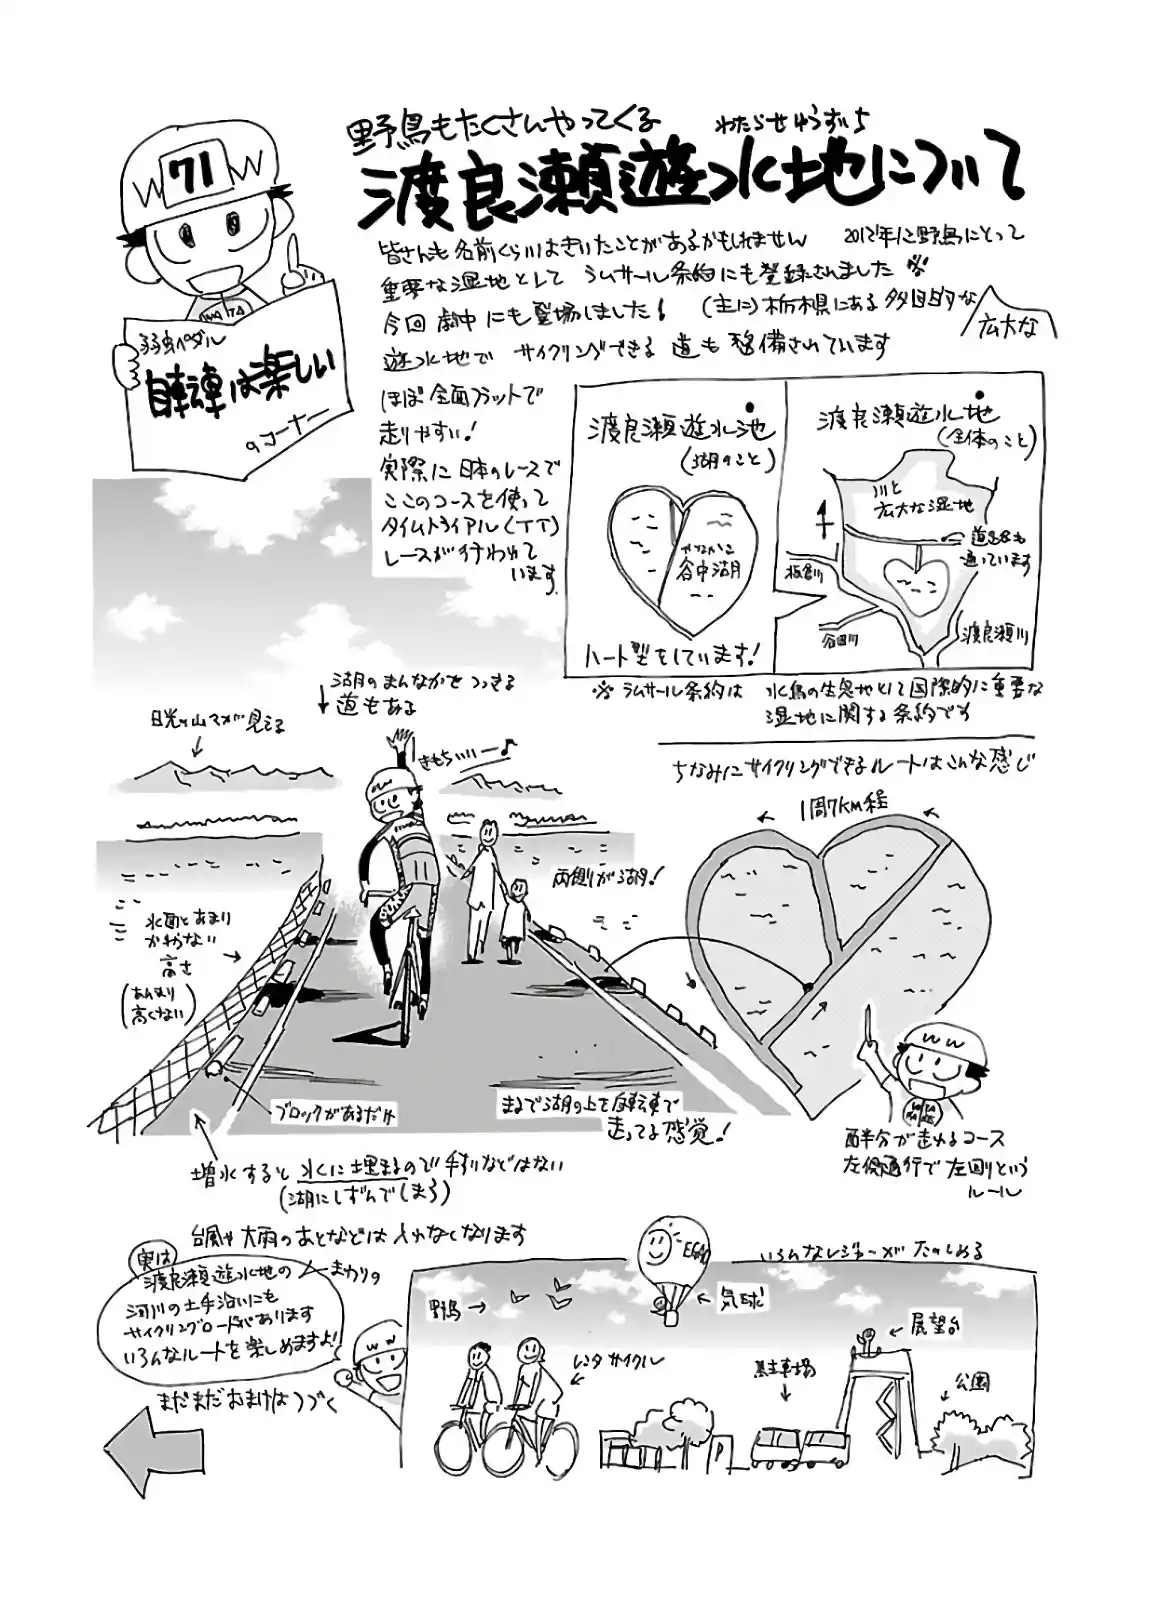 野鳥もたくさんやってくる
わたらせゆうすいち
渡良瀬遊水地について
W 71 W
WATA
弱虫ペダル
自転車は楽しい
のコーナー
皆さんも名前くらいはきいたことがあるかもしれません 2012年に野鳥にとって
重要な湿地として ラムサール条約にも登録されました※
今回 劇中にも登場しました! (主に)栃木県にある多目的な
広大な
遊水地で サイクリングできる 道も整備されています
ほぼ全面フラットで
走りやすい!
実際に日本のレースで
ここのコースを使って
タイムトライアル(TT)
レースが行われて
います
渡良瀬遊水池
(湖のこと)
やなかこ
谷中湖
ハート型をしています!
渡良瀬遊水地
(全体のこと)
川と
広大な湿地
道路も
通っています
板倉川
谷田川
渡良瀬川
※ラムサール条約は 水鳥の生息地として国際的に重要な
湿地に関する条約です
湖のまんなかをつっきる
道もある
日光の山々が見える
きもちいいー♪
両側が湖!
水面とあまり
かわらない
高さ
(あんまり
高くない)
ブロックがあるだけ
まるで湖の上を自転車で
走ってる感覚!
増水すると 水に埋まるので手すりなどはない
(湖にしずんでしまう)
台風や大雨のあとなどは入れなくなります
ちなみにサイクリングできるルートはこんな感じ
1周7KM程
W W
西半分が走れるコース
左側通行で左回りという
ルール
実は
渡良瀬遊水地の一まわりの
河川の土手沿いにも
サイクリングロードがあります
いろんなルートを楽しめますよ!
W W
まだまだおまけはつづく
いろんなレジャーがたのしめる
野鳥
EGAO
気球
レンタサイクル
駐車場
展望台
公園
P